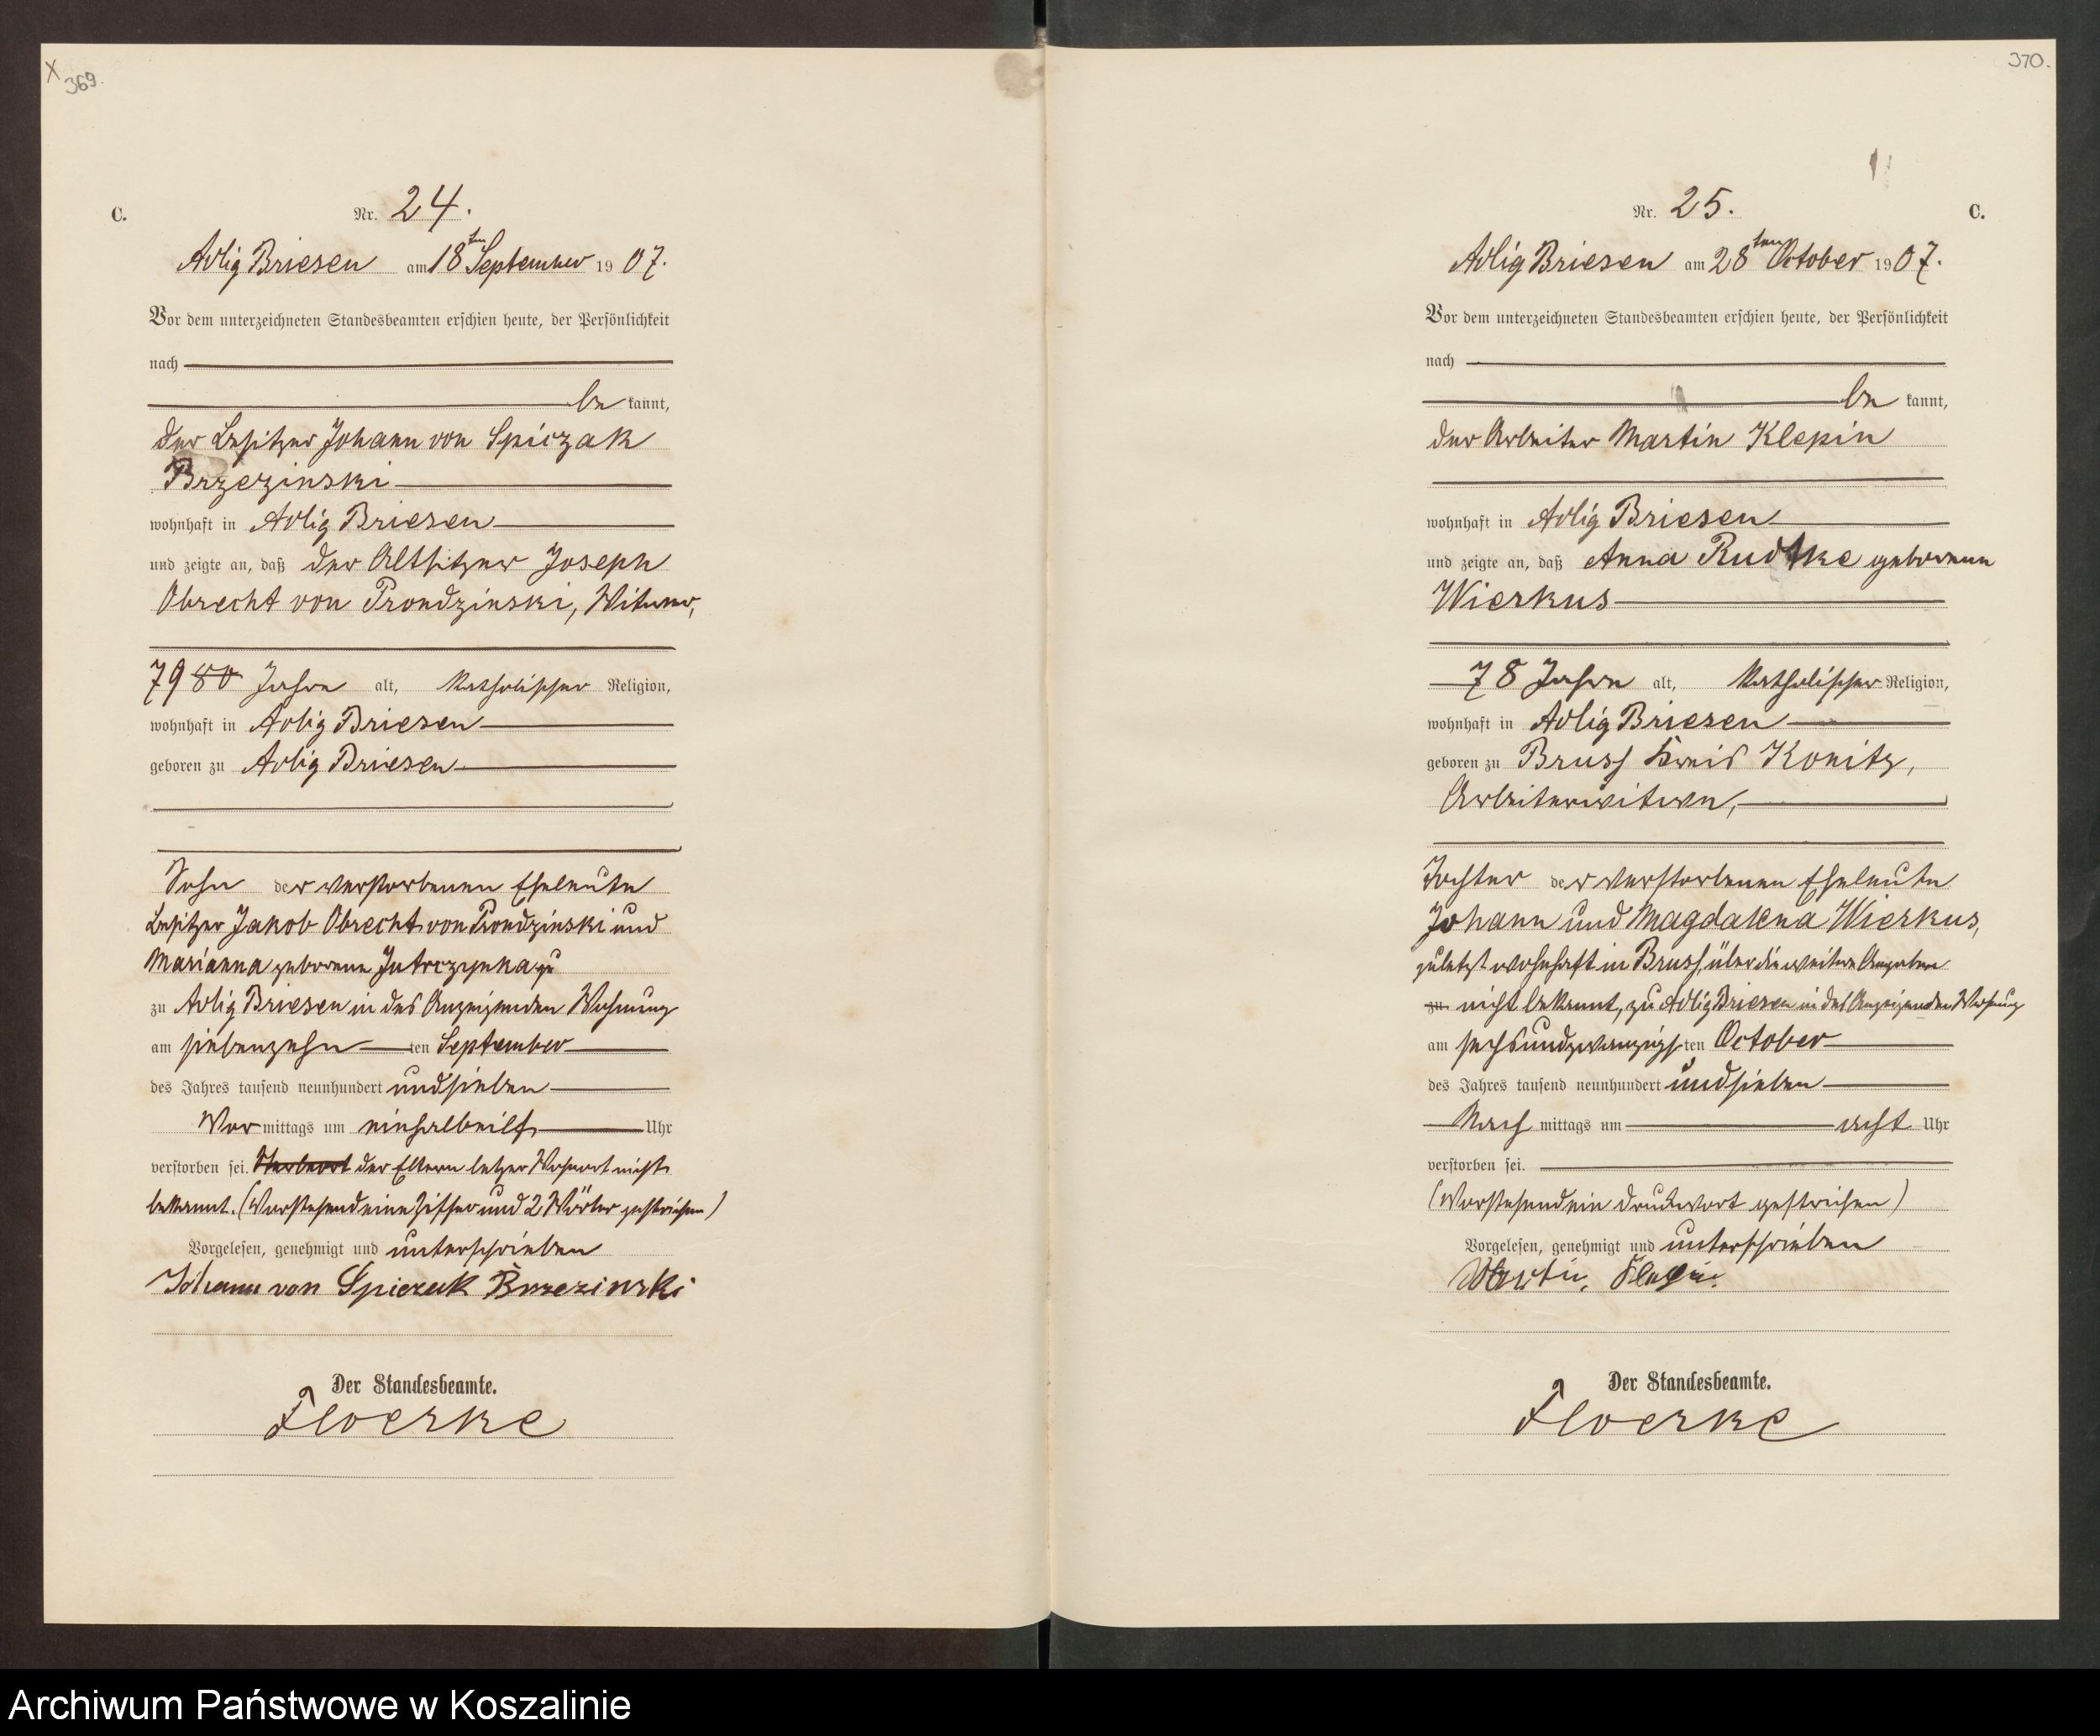 X
369.
C.
Nr. 24.
Adlig Briesen am 18ten September 1907.
Vor dem unterzeichneten Standesbeamten erschien heute, der Persönlichkeit
nach
be kannt,
der Besitzer Johann von Spiczak
Brzezinski
wohnhaft in Adlig Briesen
und zeigte an, daß der Altsitzer Joseph
Obrecht von Prondzinski, Witwer,
79 80 Jahre alt, katholischer Religion,
wohnhaft in Adlig Briesen
geboren zu Adlig Briesen
Sohn der verstorbenen Eheleute
Besitzer Jakob Obrecht von Prondzinski und
Marianna geborene zu
zu Adlig Briesen in des Anzeigenden Wohnung
am siebenzehnten September
des Jahres tausend neunhundert und sieben
Vormittags um einhalbeilf Uhr
verstorben sei. Sterbeort der Eltern letzer Wohnort nicht
bekannt. (Vorstehend eine Ziffer und 2 Wörter gestrichen)
Vorgelesen, genehmigt und unterschrieben
Johann von Spiczak Brzezinski
Der Standesbeamte.
Floerke
370.
Nr. 25.
C.
Adlig Briesen am 28ten October 1907.
Vor dem unterzeichneten Standesbeamten erschien heute, der Persönlichkeit
nach
be kannt,
der Arbeiter Martin Klepin
wohnhaft in Adlig Briesen
und zeigte an, daß Anna Rudtke geborene
Wierkus
78 Jahre alt, katholischer Religion,
wohnhaft in Adlig Briesen
geboren zu Bruss Kreis Konitz,
Arbeiterwitwe,
Tochter der verstorbenen Eheleute
Johann und Magdalena Wierkus,
zuletzt wohnhaft in Bruss, über die weitere Angaben
zu nicht bekannt, zu Adlig Briesen in des Anzeigenden Wohnung
am sechsundzwanzigsten October
des Jahres tausend neunhundert und sieben
Nachmittags um acht Uhr
verstorben sei.
(Vorstehend ein Druckwort gestrichen)
Vorgelesen, genehmigt und unterschrieben
Martin Klepin.
Der Standesbeamte.
Floerke
Archiwum Państwowe w Koszalinie